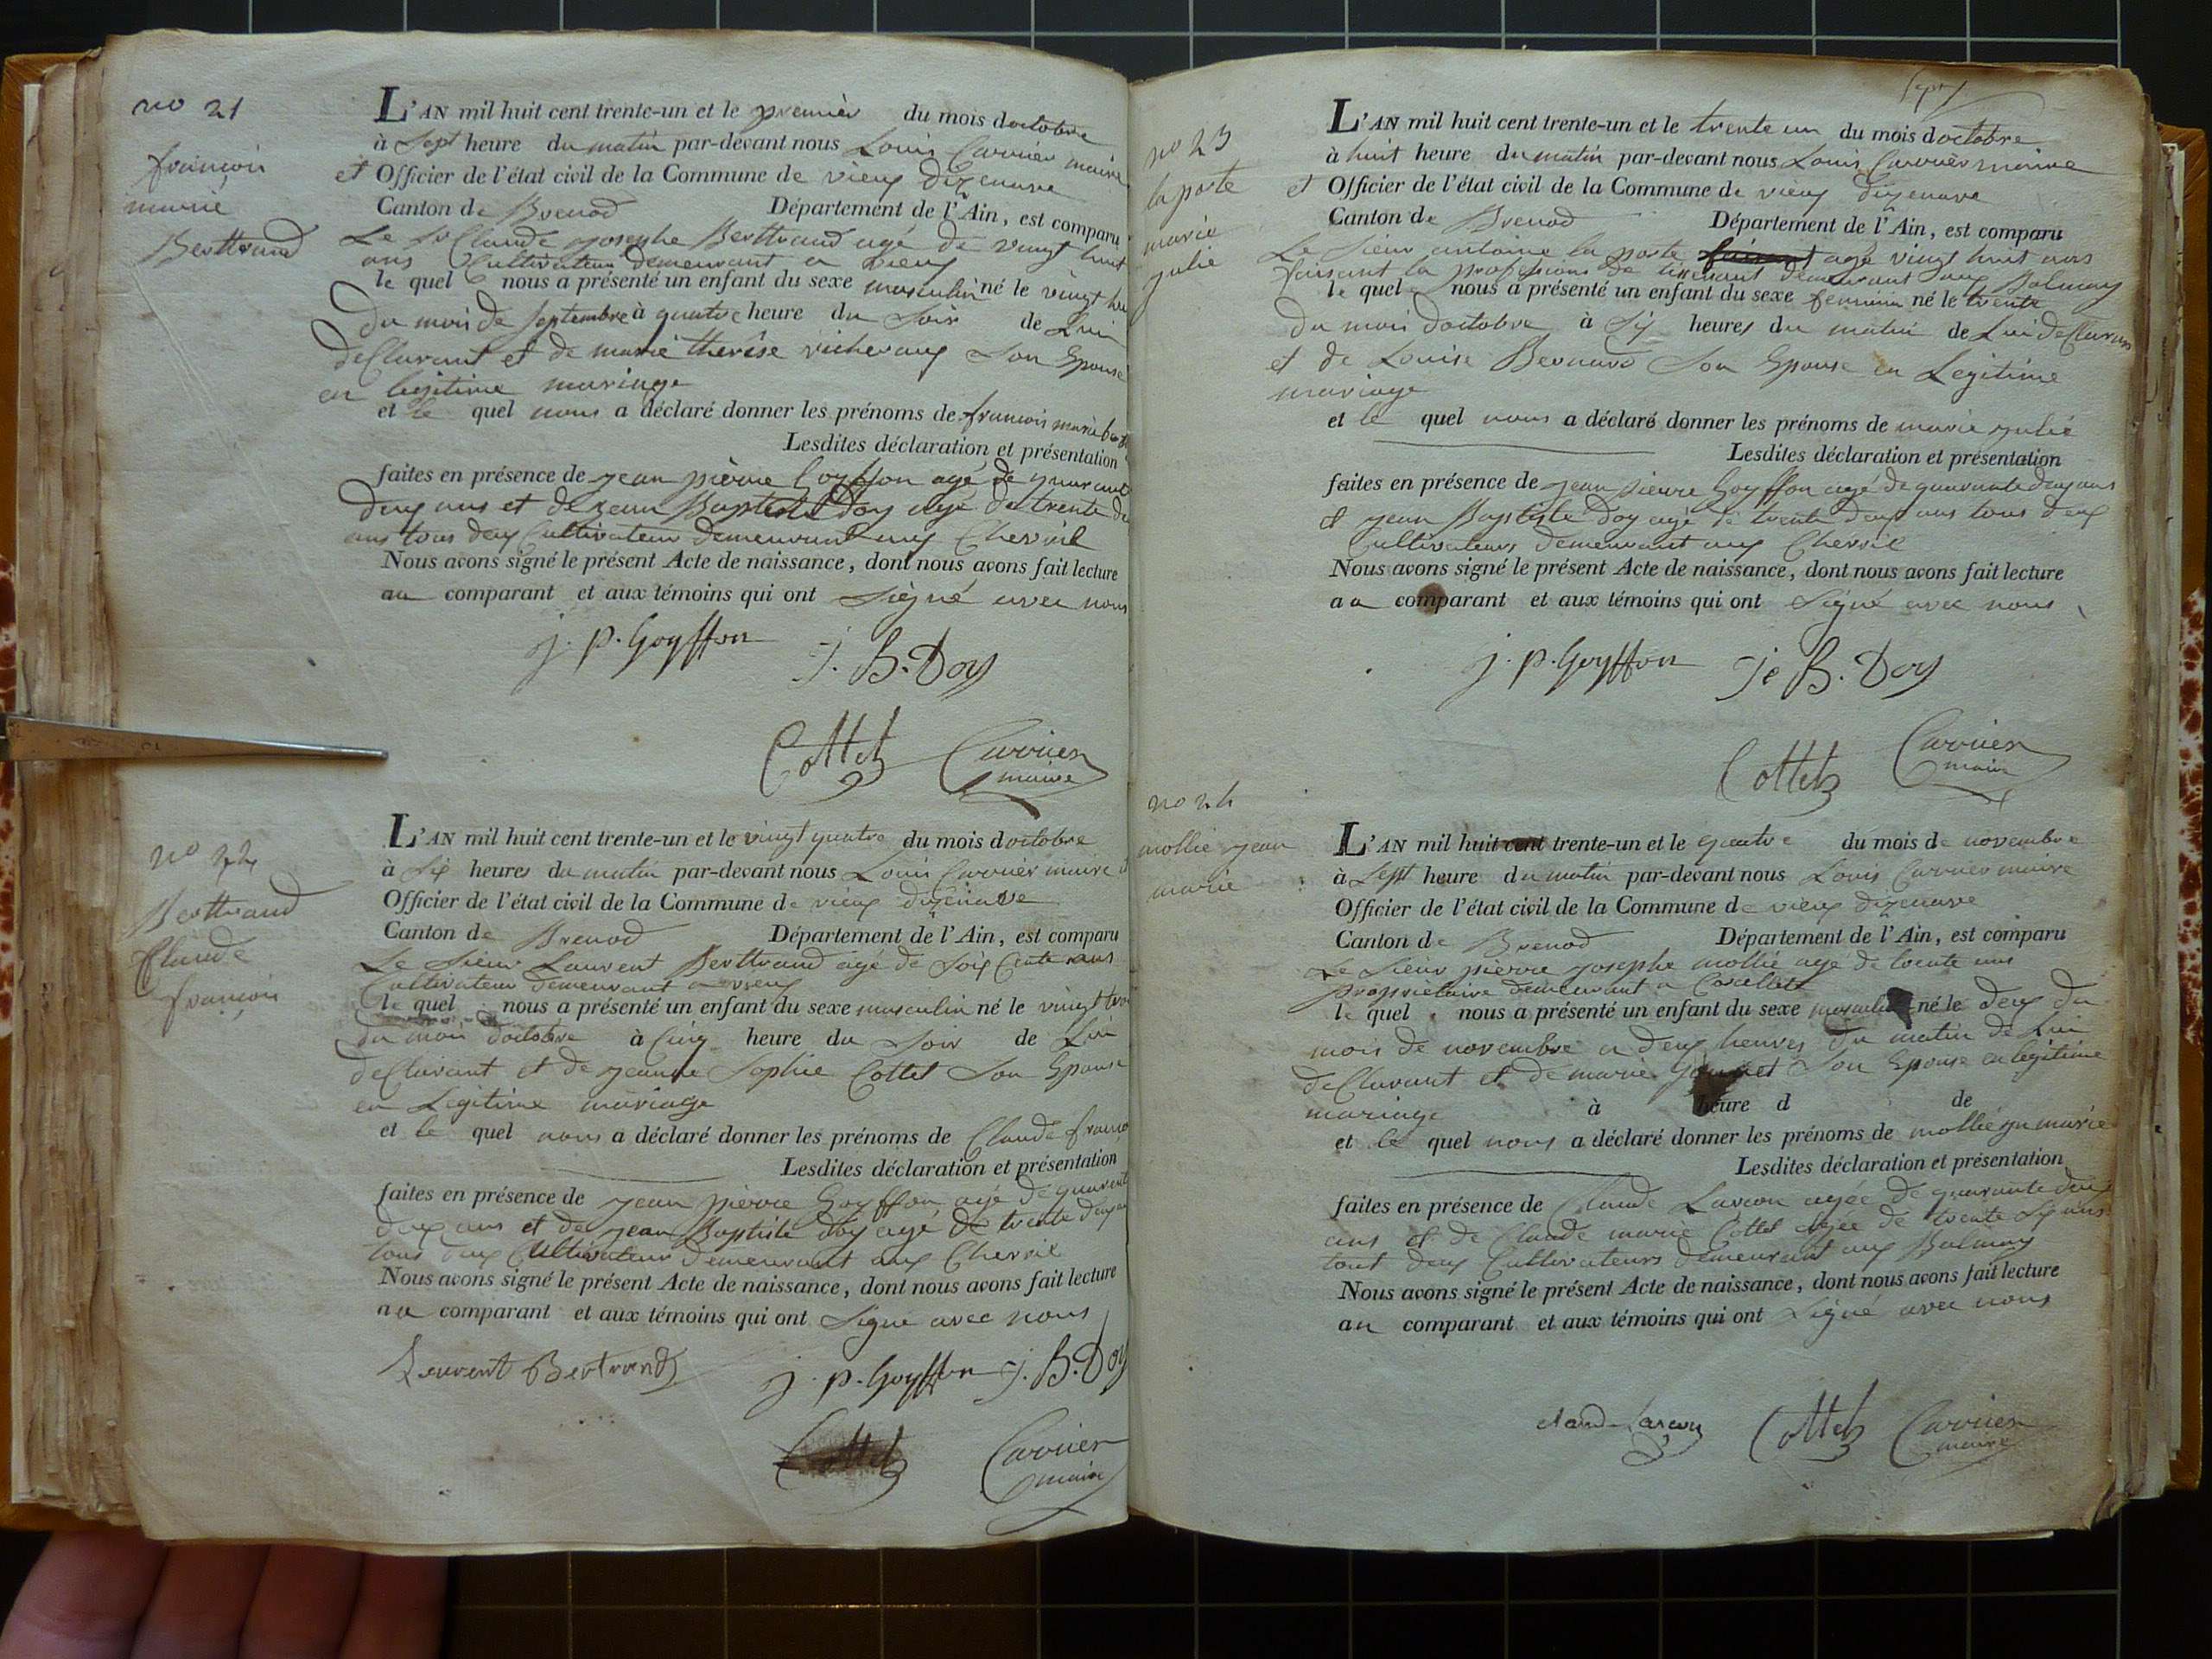 no 21
françois
marie
Berttrand
L'AN mil huit cent trente-un et le premier du mois doctobre
à Sept heure du matin par-devant nous Louis Carrier maire
et Officier de l'état civil de la Commune de vieux dizenave
Canton de Brenod Département de l'Ain, est comparu
Le Sr Claude josephe Berttrand agé de vingt huit
ans Cultivateur demeurant a vieux
le quel nous a présenté un enfant du sexe masculin né le vingt
du mois de Septembre à quatre heure du Soir de Lui
deClarant et de marie therése richeraux Son Epouse
en legitime mariage
et le quel nous a déclaré donner les prénoms de françois marie
Lesdites déclaration et présentation
faites en présence de jean pièrre Goyffon agé de quarante
deux ans et de jean Baptiste Doy agé de trente
ans tous deux Cultivateur demeurant aux Chevril
Nous avons signé le présent Acte de naissance, dont nous avons fait lecture
au comparant et aux témoins qui ont Siègné avec nous
j. p. Goyffon j. B. Doy
Cottet Carrier
maire
no 22
Berttrand
Claude
françois
L'AN mil huit cent trente-un et le vingt quatre du mois doctobre
à Six heures du matin par-devant nous Louis Carrier maire
Officier de l'état civil de la Commune de vieux dizenave
Canton de Brenod Département de l'Ain, est comparu
Le Sieur Laurent Berttrand agé de Soix Cente ans
Cultivateur demeurant a vieux
le quel nous a présenté un enfant du sexe masculin né le vingt
du mois doctobre à Cinq heure du Soir de Lui
deClarant et de jeanne Sophie Cottet Son Epouse
en Legitime mariage
et le quel nous a déclaré donner les prénoms de Claude
Lesdites déclaration et présentation
faites en présence de jean pièrre Goyffon agé de quarante
deux ans et de jean Baptiste doy agé de trente deux
tous deux Cultivateur demeurant aux Chevril
Nous avons signé le présent Acte de naissance, dont nous avons fait lecture
au comparant et aux témoins qui ont Signé avec nous
Laurent Bertrand j. p. Goyffon j. B. Doy
Cottet Carrier
maire
no 23
la porte
marie
julie
L'AN mil huit cent trente-un et le trente un du mois doctobre
à huit heure du matin par-devant nous Louis Carrier maire
et Officier de l'état civil de la Commune de vieux dizenave
Canton de Brenod Département de l'Ain, est comparu
Le Sieur antoine la porte agé vingt huit ans
faisant la professions de tisserant demeurant aux Balmay
le quel nous a présenté un enfant du sexe feminin né le trente
du mois doctobre à Six heures du matin de Lui deClarant
et de Louise Bernard Son Epouse en Legitime
mariage
et le quel nous a déclaré donner les prénoms de marie julie
Lesdites déclaration et présentation
faites en présence de jean pierre Goyffon agé de quarante deux ans
et jean Baptiste Doy agé de trente deux ans tous deux
Cultivateurs demeurant aux Chevril
Nous avons signé le présent Acte de naissance, dont nous avons fait lecture
au comparant et aux témoins qui ont Signé avec nous
j. p. Goyffon je B. Doy
Cottet Carrier
maire
no 24
mollie jean
marie
L'AN mil huit cent trente-un et le quatre du mois de novembre
à Sept heure du matin par-devant nous Louis Carrier maire
Officier de l'état civil de la Commune de vieux dizenave
Canton de Brenod Département de l'Ain, est comparu
Le Sieur pierre josephe mollie agé de trente ans
propriétaire demeurant a Corcellet
le quel nous a présenté un enfant du sexe masculin né le deux du
mois de novembre a deux heures du matin de Lui
deClarant et de marie Son Epouse en legitime
mariage à heure d de
et le quel nous a déclaré donner les prénoms de mollie jn marie
Lesdites déclaration et présentation
faites en présence de Claude Larcon agée de quarante deux
ans et de Claude marie Cottet agée de trente Six ans
tout deux Cultivateurs demeurant aux Balmay
Nous avons signé le présent Acte de naissance, dont nous avons fait lecture
au comparant et aux témoins qui ont Signé avec nous
Claude Larcon Cottet Carrier
maire